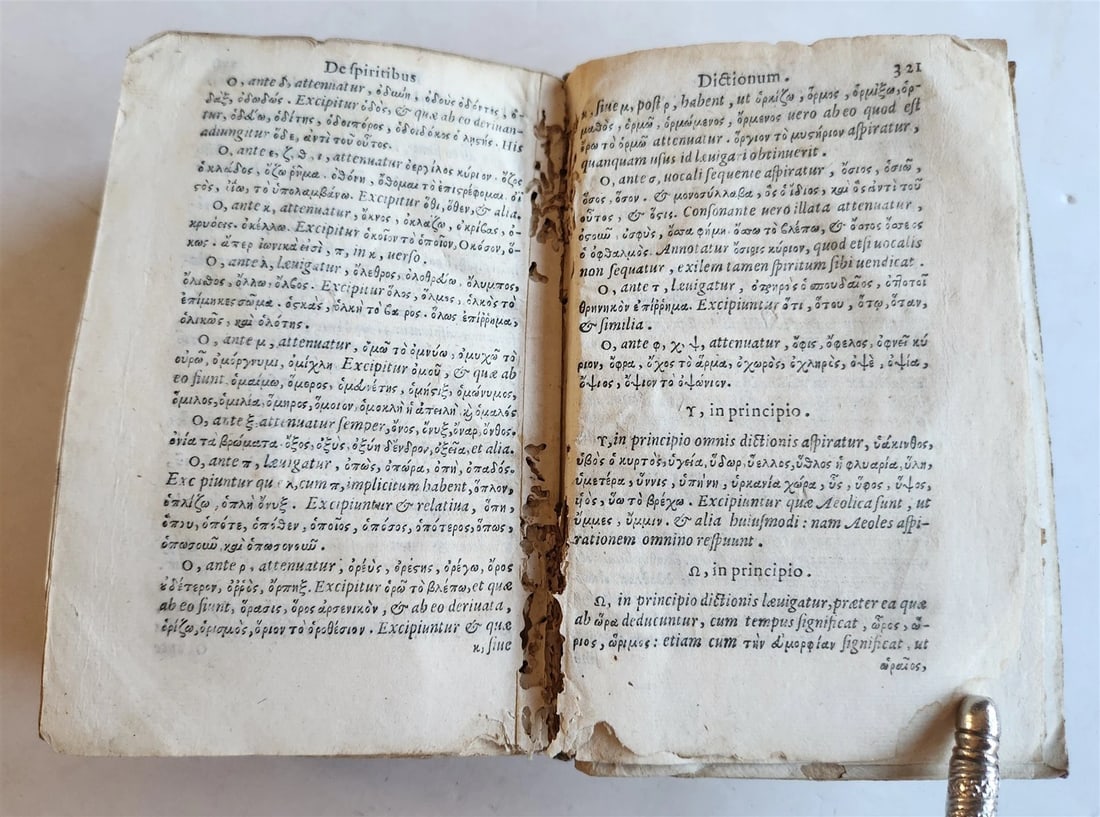 De spiritibus
O, ante δ, attenuatur, ὀδμὴ, ὀδοὺς ὀδόντος, ὀ-
δὰξ, ὀδωδώς. Excipitur ὁδὸς, & quæ ab eo deriuan-
tur, ὁδεύω, ὁδίτης, ὁδοιπόρος, ὁδοιδόκος ὁ λῃστής. His
adiungitur ὅδε, ἀντὶ τοῦ οὗτος.
O, ante ε, ζ, θ, ι, attenuatur ὀεργίλος κύριον. ὄζος
ὁ κλάδος, ὄζω ῥῆμα. ὀθόνη, ὄθομαι τὸ ἐπιστρέφομαι. ὀϊ
στὸς, ὀΐω, τὸ ὑπολαμβάνω. Excipitur ὅθι, ὅθεν, & alia.
O, ante κ, attenuatur, ὄκνος, ὀκλάζω, ὀκρίβας, ὀ-
κρυόεις. ὀκέλλω. Excipitur ὁκοῖον τὸ ὁποῖον. Ὁκόσον, ὅ-
κως. ἅπερ ἰωνικά εἰσὶ, π, in κ, uerso.
O, ante λ, læuigatur, ὄλεθρος, ὀλοθρεύω, ὄλυμπος,
ὄλιθος, ὄλλω, ὄλβος. Excipitur ὅλος, ὅλμος, ὁλκὸς τὸ
ἐπίμηκες σῶμα. ὁλκὰς, ὁλκὴ τὸ βάρος. ὅλως ἐπίῤῥημα,
ὁλικῶς, καὶ ὁλότης.
O, ante μ, attenuatur, ὀμῶ τὸ ὀμνύω, ὀμυχῶ τὸ
οὐρῶ, ὀμόργνυμι, ὀμίχλη Excipitur ὁμοῦ, & quæ ab
eo fiunt. ὁμαίμω, ὅμηρος, ὁμευνέτης, ὁμῆλιξ, ὁμώνυμος,
ὅμιλος, ὁμιλία, ὅμηρος, ὅμοιον, ὁμοκλὴ ἡ ἀπειλὴ. κỳ ὁμαλός
O, ante ξ attenuatur semper, ὄνος, ὄνυξ, ὄναρ, ὄνθος.
ὀνία τὰ βρώματα. ὄξος, ὀξὺς, ὀξύη δένδρον, ὀξεῖα, et alia.
O, ante π, læuigatur, ὀπῶς, ὀπώρα, ὀπὴ, ὀπαδός.
Exc piuntur quæ λ, cum π, implicitum habent, ὅπλον,
ὁπλίζω, ὁπλὴ ὄνυξ. Excipiuntur & relatiua, ὅπη,
ὅπου, ὁπότε, ὁπόθεν, ὁποῖος, ὁπόσος, ὁπότερος, ὅπως,
ὁπωσοῦν, καὶ ὁπωσονοῦν.
O, ante ρ, attenuatur, ὀρεὺς, ὀρέστης, ὀρέγω, ὄρος
οὐδέτερον, ὀῤῥὸς, ὄρπηξ. Excipitur ὁρῶ τὸ βλέπω, et quæ
ab eo fiunt, ὅρασις, ὅρος ἀρσενικὸν, & ab eo deriuata,
ὁρίζω, ὁρισμὸς, ὅριον τὸ ὁροθέσιον. Excipiuntur & quæ
κ, siue
Dictionum. 321
κ, siue μ, post ρ, habent, ut ὁρκίζω, ὅρμος, ὁρμίζω, ὁρ-
μαθὸς, ὁρμῶ, ὁρμώμενος, ὄρμενος uero ab eo quod est
ὄρω τὸ ὁρμῶ attenuatur. ὄργιον τὸ μυστήριον aspiratur,
quanquam usus id læuigari obtinuerit.
O, ante σ, uocali sequente aspiratur, ὅσιος, ὁσιῶ,
ὅσος, ὅσον. & μονοσύλλαβα, ὃς ὁ ἴδιος, καὶ ὃς ἀντὶ τοῦ
οὗτος, & ὅστις. Consonante uero illata attenuatur,
ὀστοῦν, ὀσφὺς, ὄσσα φήμη. ὄσσω τὸ βλέπω, & ὄσσος ὄσσεος
ὁ ὀφθαλμός. Annotatur ὄσιρις κύριον, quod etsi uocalis
non sequatur, exilem tamen spiritum sibi uendicat.
O, ante τ, læuigatur, ὀτρηρὸς ὁ σπουδαῖος, ὀτοτοῖ
θρηνικὸν ἐπίῤῥημα. Excipiuntur ὅτι, ὅτου, ὅτῳ, ὅταν,
& similia.
O, ante φ, χ, ψ, attenuatur, ὄφις, ὄφελος, ὀφνεῖ κύ
ριον, ὄφρα, ὄχος τὸ ἅρμα, ὀχυρὸς, ὀχληρὸς, ὀψὲ, ὀψία,
ὄψιος, ὄψιον τὸ ὀψώνιον.
Υ, in principio.
Υ, in principio omnis dictionis aspiratur, ὑάκινθος,
ὑβὸς ὁ κυρτὸς, ὑγεία, ὕδωρ, ὕελλος, ὕθλος ἡ φλυαρία, ὕλη,
ὑμετέρα, ὕννις, ὑπήνη, ὑρκανία χώρα, ὗς, ὕφος, ὕψος,
ὑὸς, ὕω τὸ βρέχω. Excipiuntur quæ Aeolica sunt, ut
ὔμμες, ὔμμιν. & alia huiusmodi: nam Aeoles aspi-
rationem omnino respuunt.
Ω, in principio.
Ω, in principio dictionis læuigatur, præter ea quæ
ab ὥρα deducuntur, cum tempus significat, ὧρος, ὥ-
ριος, ὥριμος: etiam cum τὴν εὐμορφίαν significat, ut
ὡραῖος,